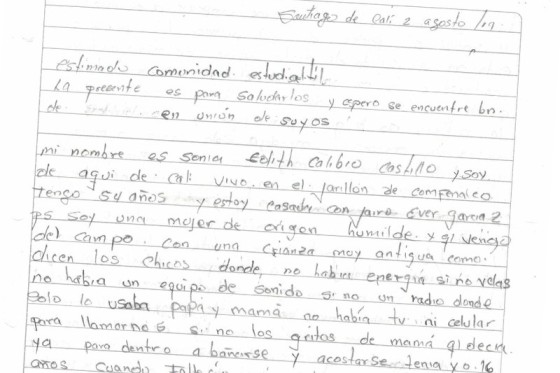 Santiago de Cali 2 agosto /19.
estimado comunidad estudiantil
La presente es para Saludarlos y espero se encuentre bn.
de en unión de suyos
mi nombre es Sonia Edith Calibio Castillo y soy
de aqui de Cali vivo en el Jarillon de comfennico
Tengo 54 años y estoy casada con Jairo Ever Garcia Z
ps soy una mujer de origen humilde. y q/ vengo
del campo. con una crianza muy antigua como.
dicen los chicos donde, no habia energia si no velas
no habia un equipo de sonido si no un radio donde
solo lo usaba papá y mamá no había tv. ni celular
para llamarnos si no los gritos de mamá q/ decia.
ya para dentro a bañarse y acostarse tenia yo 16
años cuando